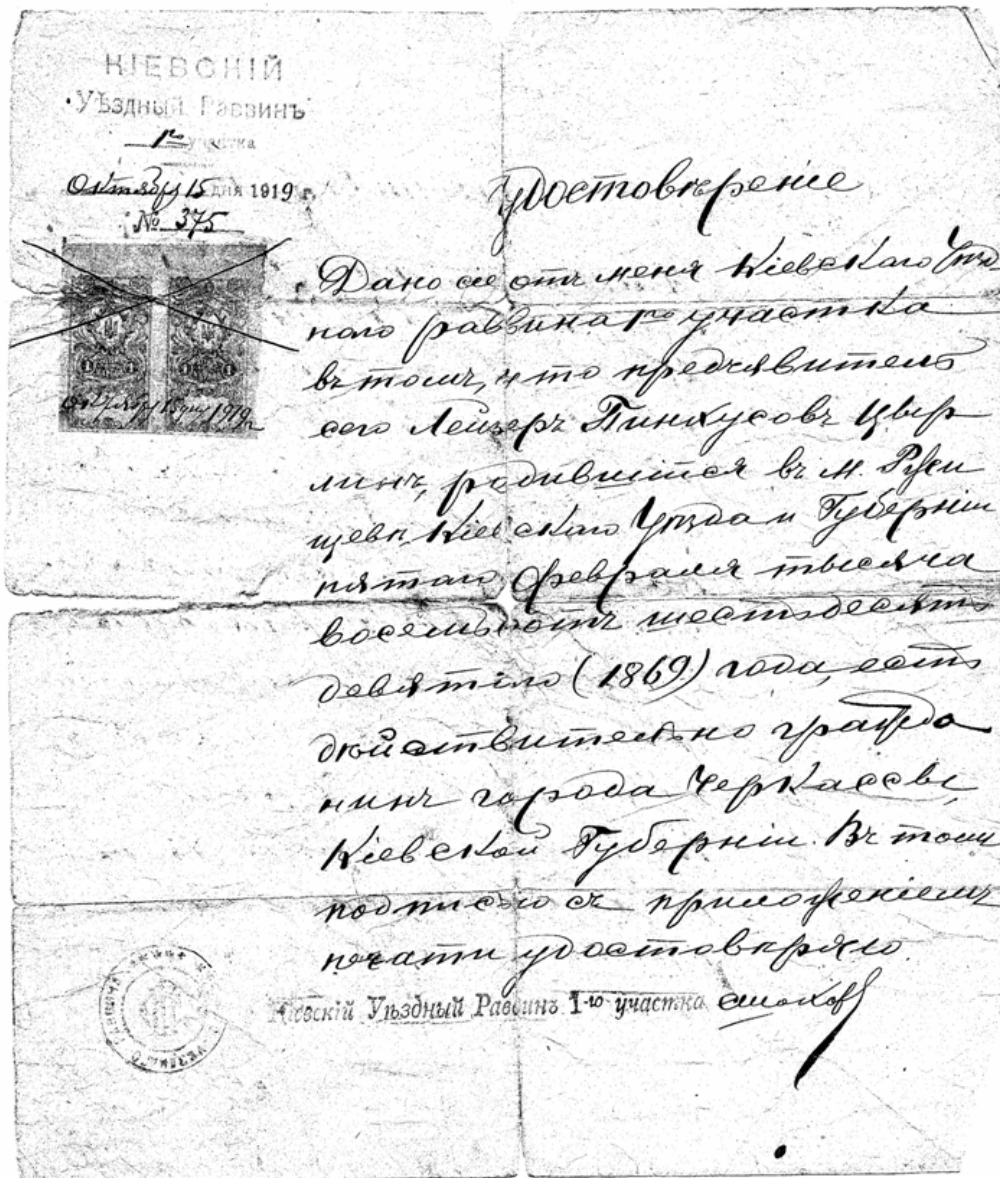 КІЕВСКІЙ
Уѣздный Раввинъ
1го участка
Октября 15 дня 1919 г.
№ 375
Октября 15 дня 1919 г.
Удостовѣреніе
Дано сіе отъ меня Кіевскаго Уѣзд
наго раввина 1го участка
въ томъ, что предъявитель
сего Лейзеръ Пинхусовъ Цыр
линъ, родившійся въ м. Ржи
щевѣ, Кіевскаго Уѣзда и Губерніи
пятаго февраля тысяча
восемьсотъ шестьдесятъ
девятаго (1869) года, есть
дѣйствительно гражда
нинъ города Черкассы,
Кіевской Губерніи. Въ томъ
подписью съ приложеніемъ
печати удостовѣряю.
Кіевскій Уѣздный Раввинъ 1-го участка